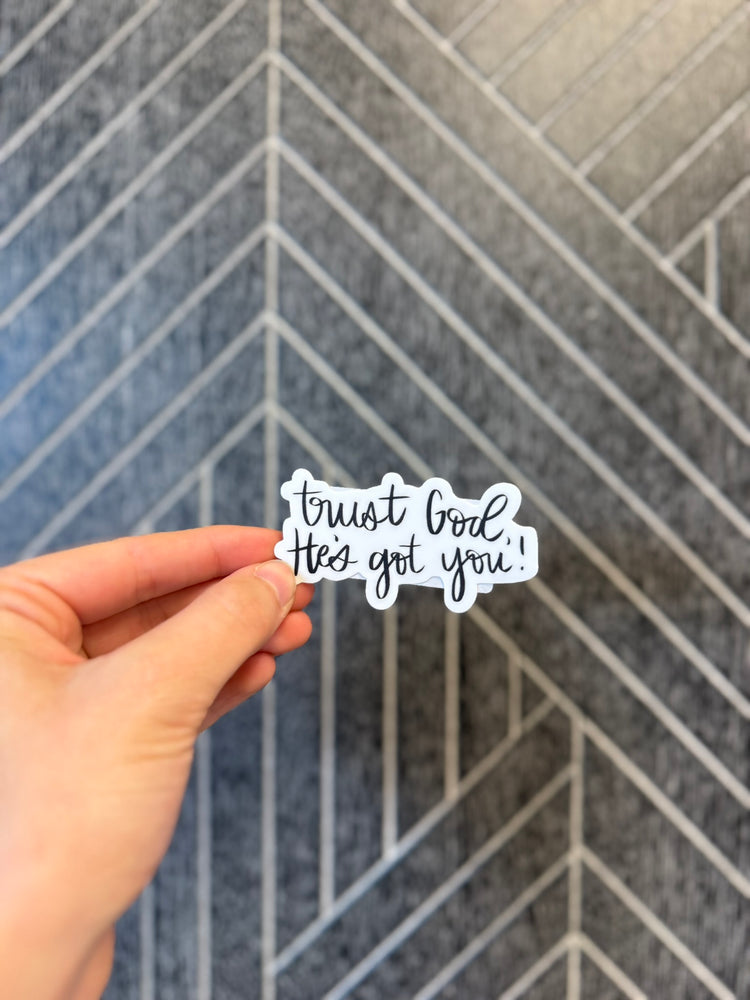 trust God,
He's got you!